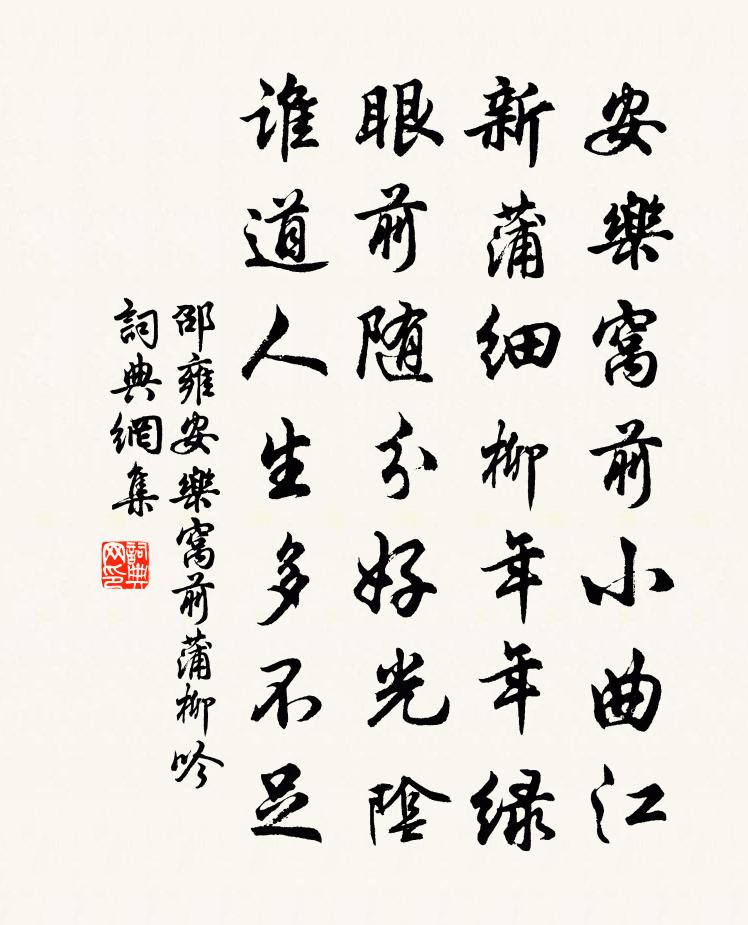 安樂窩前小曲江
新蒲细柳年年緑
眼前随分好光陰
谁道人生多不足
邵雍安樂窩前蒲柳吟
詞典網集
詞典
网印